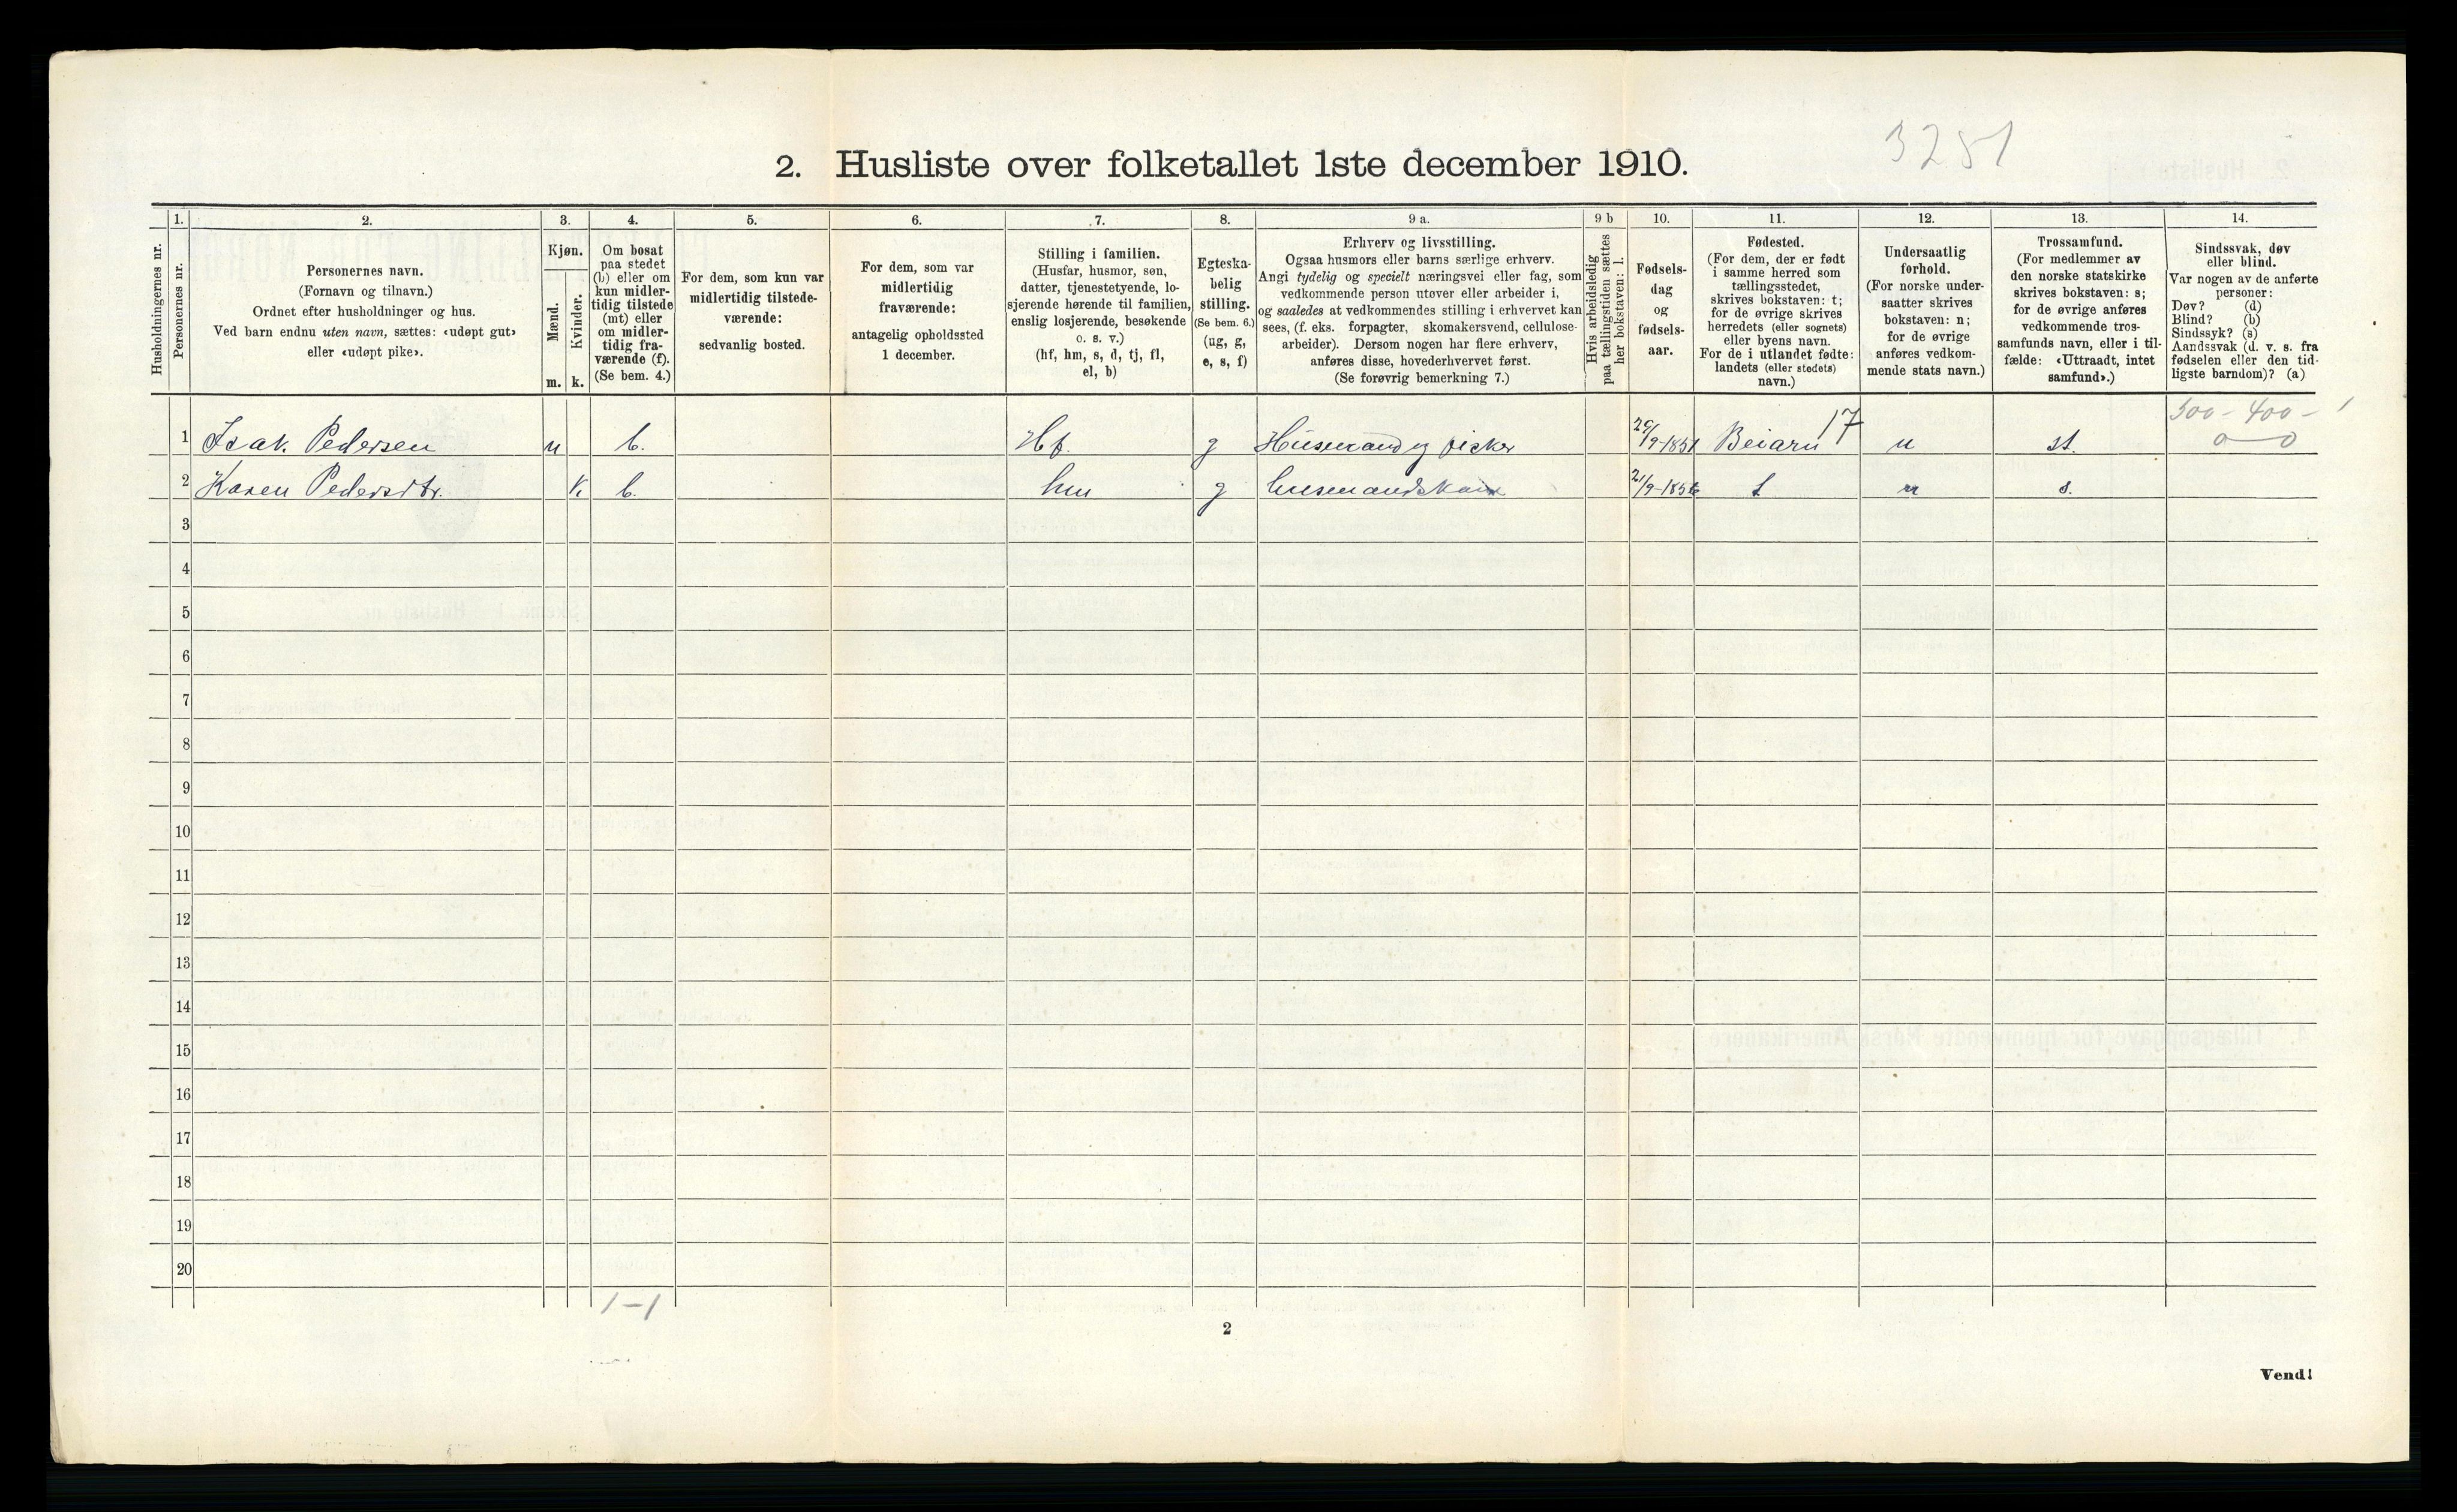 3251
2. Husliste over folketallet 1ste december 1910.
Husholdningernes nr.
1.
Personernes nr.
2.
Personernes navn.
(Fornavn og tilnavn.)
Ordnet efter husholdninger og hus.
Ved barn endnu uten navn, sættes: «udøpt gut»
eller «udøpt pike».
3.
Kjøn.
Mænd.
Kvinder.
m. k.
4.
Om bosat
paa stedet
(b) eller om
kun midler-
tidig tilstede
(mt) eller
om midler-
tidig fra-
værende (f).
(Se bem. 4.)
5.
For dem, som kun var
midlertidig tilstede-
værende:
sedvanlig bosted.
6.
For dem, som var
midlertidig
fraværende:
antagelig opholdssted
1 december.
7.
Stilling i familien.
(Husfar, husmor, søn,
datter, tjenestetyende, lo-
sjerende hørende til familien,
enslig losjerende, besøkende
o. s. v.)
(hf, hm, s, d, tj, fl,
el, b)
8.
Egteska-
belig
stilling.
(Se bem. 6.)
(ug, g,
e, s, f)
9 a.
Erhverv og livsstilling.
Ogsaa husmors eller barns særlige erhverv.
Angi tydelig og specielt næringsvei eller fag, som
vedkommende person utøver eller arbeider i,
og saaledes at vedkommendes stilling i erhvervet kan
sees, (f. eks. forpagter, skomakersvend, cellulose-
arbeider). Dersom nogen har flere erhverv,
anføres disse, hovederhvervet først.
(Se forøvrig bemerkning 7.)
9 b
Hvis arbeidsledig
paa tællingstiden sættes
her bokstaven: l.
10.
Fødsels-
dag
og
fødsels-
aar.
11.
Fødested.
(For dem, der er født
i samme herred som
tællingsstedet,
skrives bokstaven: t;
for de øvrige skrives
herredets (eller sognets)
eller byens navn.
For de i utlandet fødte:
landets (eller stedets)
navn.)
12.
Undersaatlig
forhold.
(For norske under-
saatter skrives
bokstaven: n;
for de øvrige
anføres vedkom-
mende stats navn.)
13.
Trossamfund.
(For medlemmer av
den norske statskirke
skrives bokstaven: s;
for de øvrige anføres
vedkommende tros-
samfunds navn, eller i til-
fælde: «Uttraadt, intet
samfund».)
14.
Sindssvak, døv
eller blind.
Var nogen av de anførte
personer:
Døv? (d)
Blind? (b)
Sindssyk? (s)
Aandssvak (d. v. s. fra
fødselen eller den tid-
ligste barndom)? (a)
500 - 400 - 1
1 Isak. Pedersen m b. Hf. g Husmand og fisker 20/9-1851 Beiarn 17 n st. 0—0
2 Karen Pedersdtr. K b. hm g husmandskone 21/9-1856 t n s.
3
4
5
6
7
8
9
10
11
12
13
14
15
16
17
18
19
20
1-1
2
Vend!